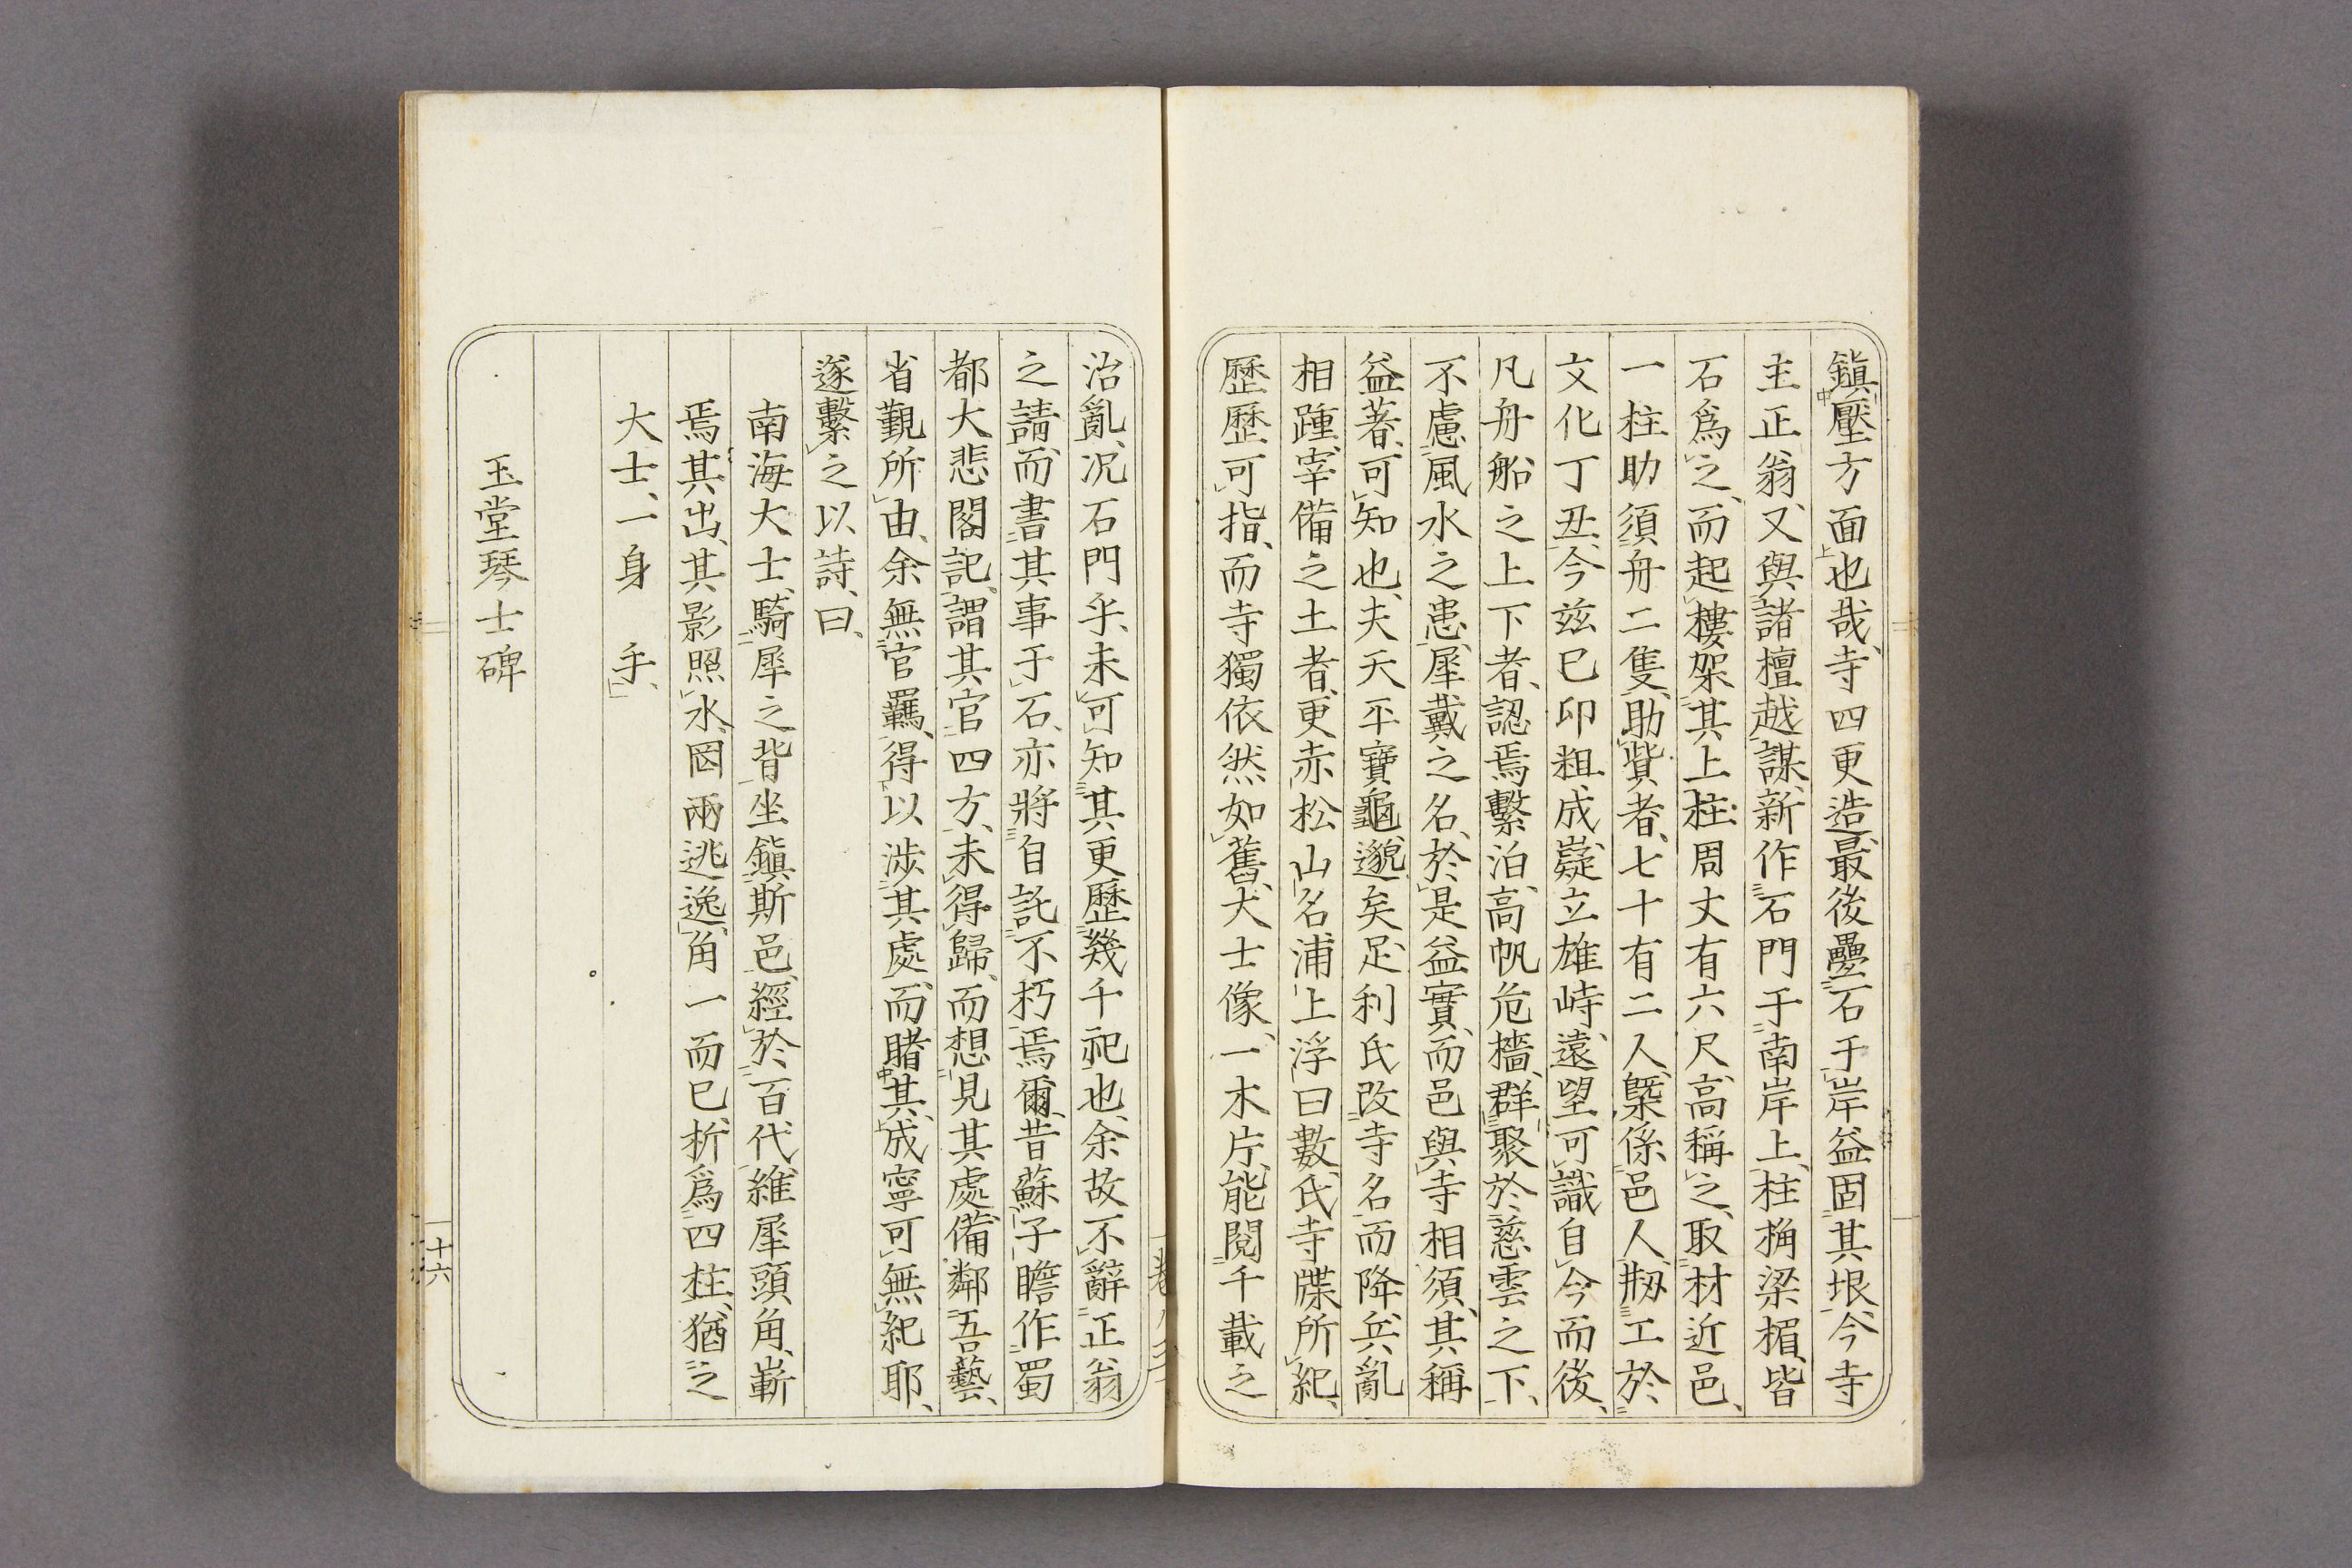 鎭壓方面也哉、寺四更造、最後疊石于岸、益固其垠、今寺
主正翁、又與諸檀越謀、新作石門于南岸上、柱桷梁楣、皆
石爲之、而起樓架其上、柱周丈有六尺、高稱之、取材近邑、
一柱助須舟二隻、助貲者、七十有二人、槩係邑人、剏工於
文化丁丑、今玆己卯粗成、嶷立雄峙、遠望可識、自今而後、
凡舟船之上下者、認焉繫泊、高帆危檣、群聚於慈雲之下、
不慮風水之患、犀戴之名、於是益實、而邑與寺相須、其稱
益著、可知也、夫天平寶龜、邈矣、足利氏改寺名、而降兵亂
相踵、宰備之土者、更赤松山名浦上浮曰數氏、寺牒所紀、
歷歷可指、而寺獨依然如舊、大士像、一木片、能閱千載之
治亂、况石門乎、未可知其更歷幾千祀也、余故不辭正翁
之請、而書其事于石、亦將自託不朽焉爾、昔蘇子瞻作蜀
都大悲閣記、謂其官四方、未得歸、而想見其處、備鄰吾藝、
省覲所由、余無官羈、得以涉其處、而睹其成、寧可無紀耶、
遂繫之以詩、曰、
南海大士、騎犀之背、坐鎭斯邑、經於百代、維犀頭角、嶄
焉其出、其影照水、罔兩逃逸、角一而已、折爲四柱、猶之
大士、一身　手、
玉堂琴士碑
十六